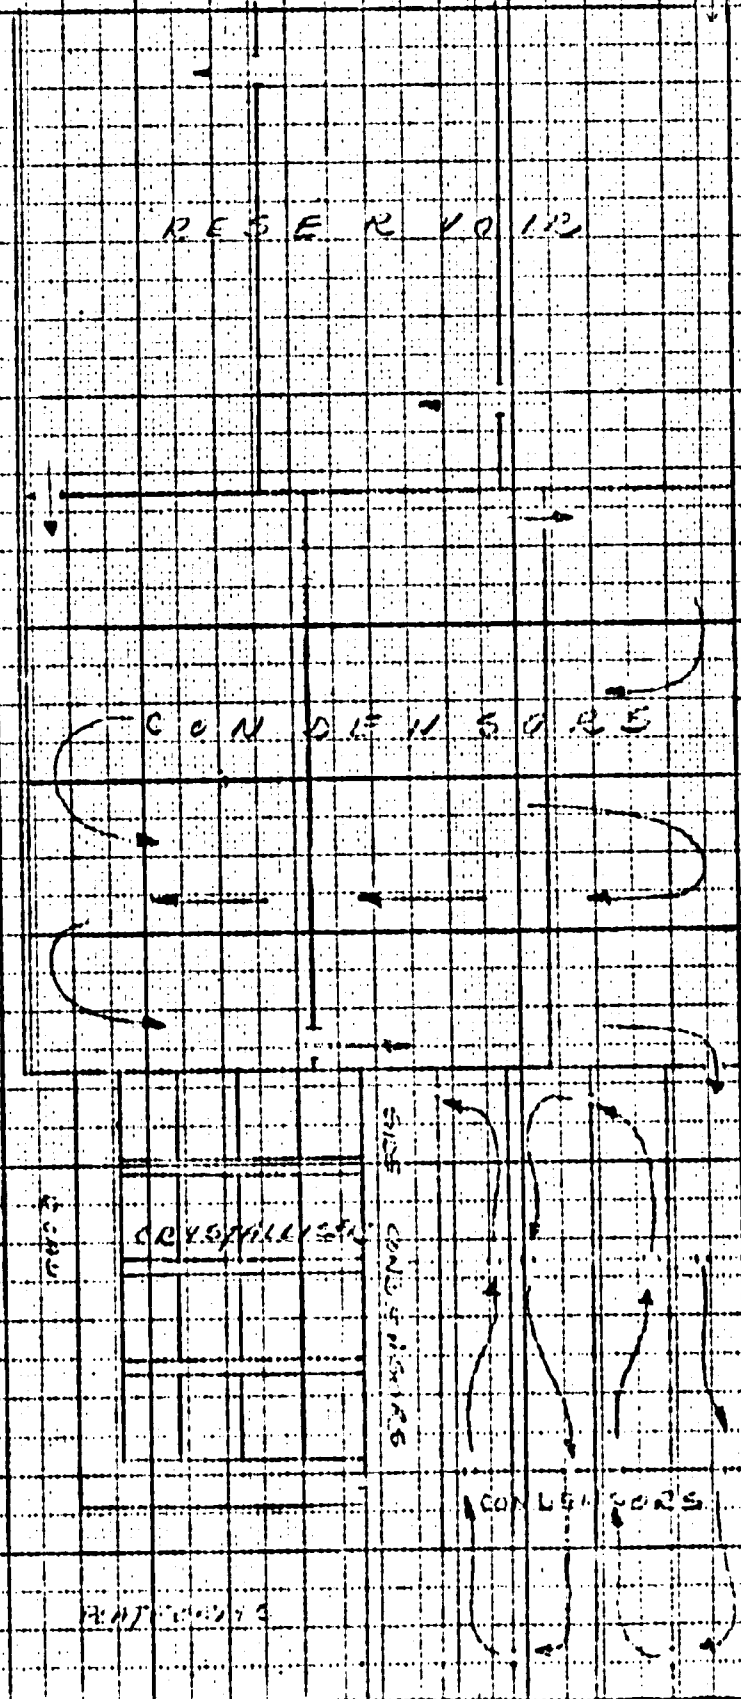 RESERVOIR
CONDENSORS
CRYSTALLISER
ROAD
CONDENSORS
CONDENSORS